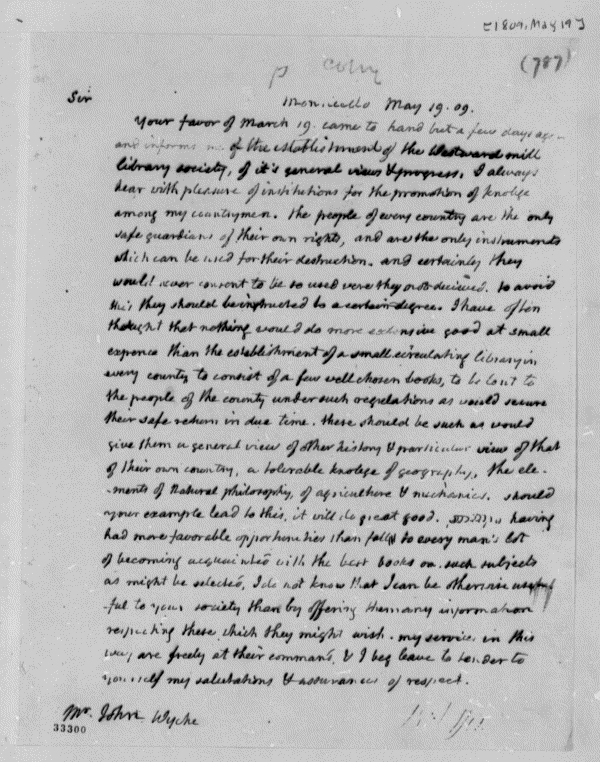 [1809, May 19]
(787)
copy
Sir
Monticello May 19. 09.
Your favor of March 19. came to hand but a few days ago
and informs me of the establishment of the Westward mill
library society, of it's general views & progress. I always
hear with pleasure of institutions for the promotion of knolege
among my countrymen. the people of every country are the only
safe guardians of their own rights, and are the only instruments
which can be used for their destruction. and certainly they
would never consent to be so used were they not decieved. to avoid
this they should be instructed to a certain degree. I have often
thought that nothing would do more extensive good at small
expence than the establishment of a small circulating library in
every county to consist of a few well chosen books, to be lent to
the people of the county under such regulations as would secure
their safe return in due time. these should be such as would
give them a general view of other history & particular view of that
of their own country, a tolerable knolege of geography, the ele-
-ments of Natural philosophy, of agriculture & mechanics. should
your example lead to this, it will do great good. having
had more favorable opportunities than fall to every man's lot
of becoming acquainted with the best books on such subjects
as might be selected, I do not know that I can be otherwise
-ful to your society than by offering them any information
respecting these which they might wish. my services in this
way are freely at their command, & I beg leave to tender to
yourself my salutations & assurances of respect.
Mr. John Wyche
33300